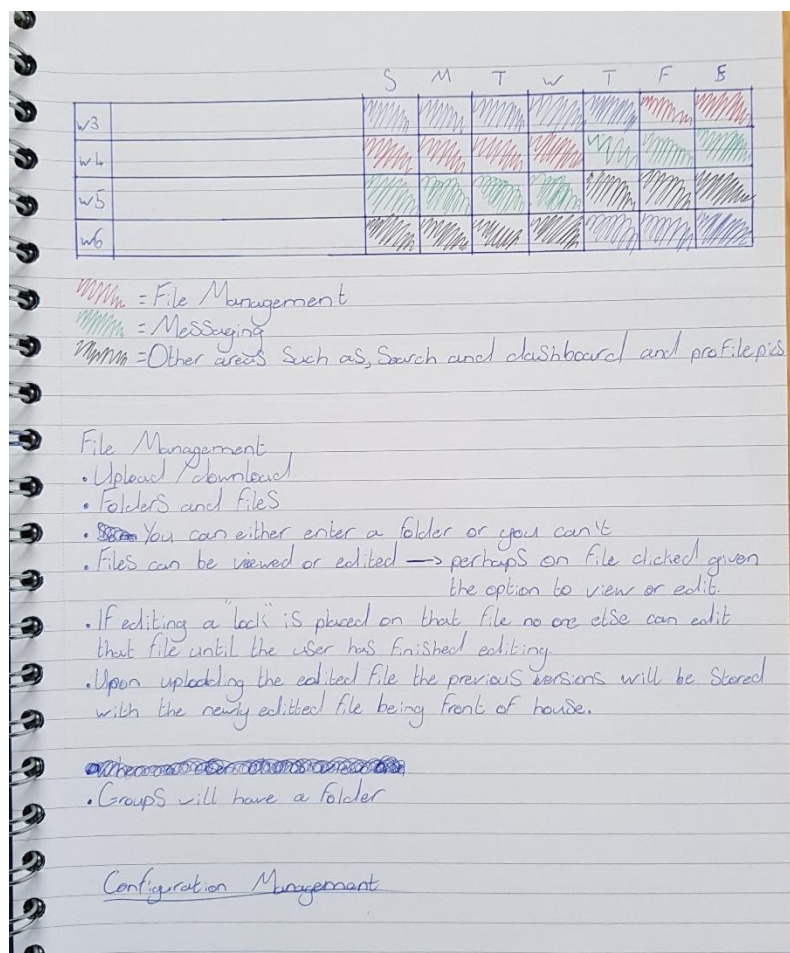 S M T W T F S
w3
w4
w5
w6
= File Management
= Messaging
= Other areas such as, Search and dashboard and profile pics
File Management
• Upload / download
• Folders and files
• You can either enter a folder or you can't
• Files can be viewed or edited → perhaps on file clicked given
the option to view or edit.
• If editing a "lock" is placed on that file no one else can edit
that file until the user has finished editing.
• Upon uploading the edited file the previous versions will be stored
with the newly editted file being front of house.
• Groups will have a folder
Configuration Management